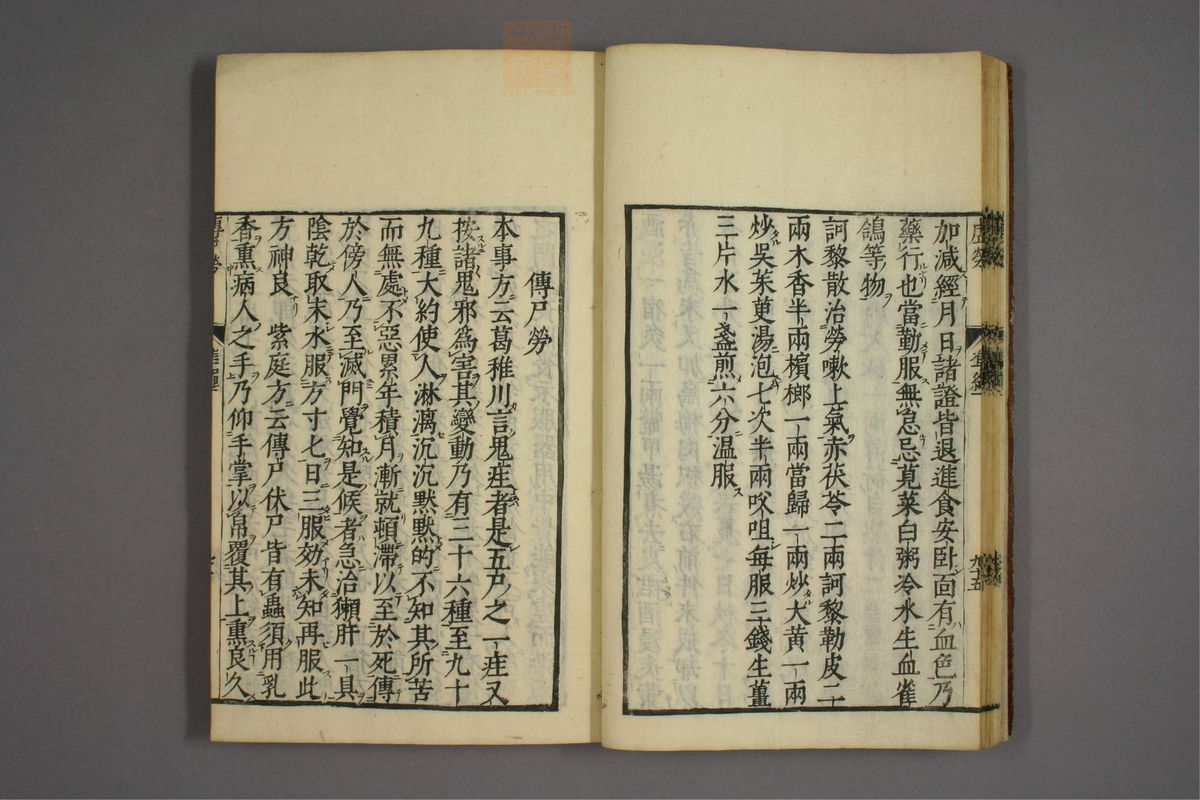 加減經月日諸證皆退進食安臥面有血色乃
藥行也當勤服無怠忌莧菜白粥冷水生血雀
鴿等物
訶黎散治勞嗽上氣赤茯苓二兩訶黎勒皮二
兩木香半兩檳榔一兩當歸一兩炒大黃一兩
炒吳茱萸湯泡七次半兩㕮咀每服三錢生薑
三片水一盞煎六分溫服
傳尸勞
本事方云葛稚川言鬼疰者是五尸之一疰又
按諸鬼邪爲害其變動乃有三十六種至九十
九種大約使人淋漓沉沉默默的不知其所苦
而無處不惡累年積月漸就頓滯以至於死傳
於傍人乃至滅門覺知是候者急治獺肝一具
陰乾取末水服方寸匕日三服効未知再服此
方神良　紫庭方云傳尸伏尸皆有蟲須用乳
香熏病人之手乃仰手掌以帛覆其上熏良久